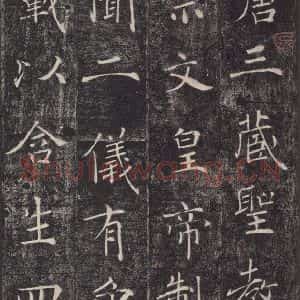 唐三藏聖教
文皇帝製
聞二儀有象
載以含生四
Shufawang.CN